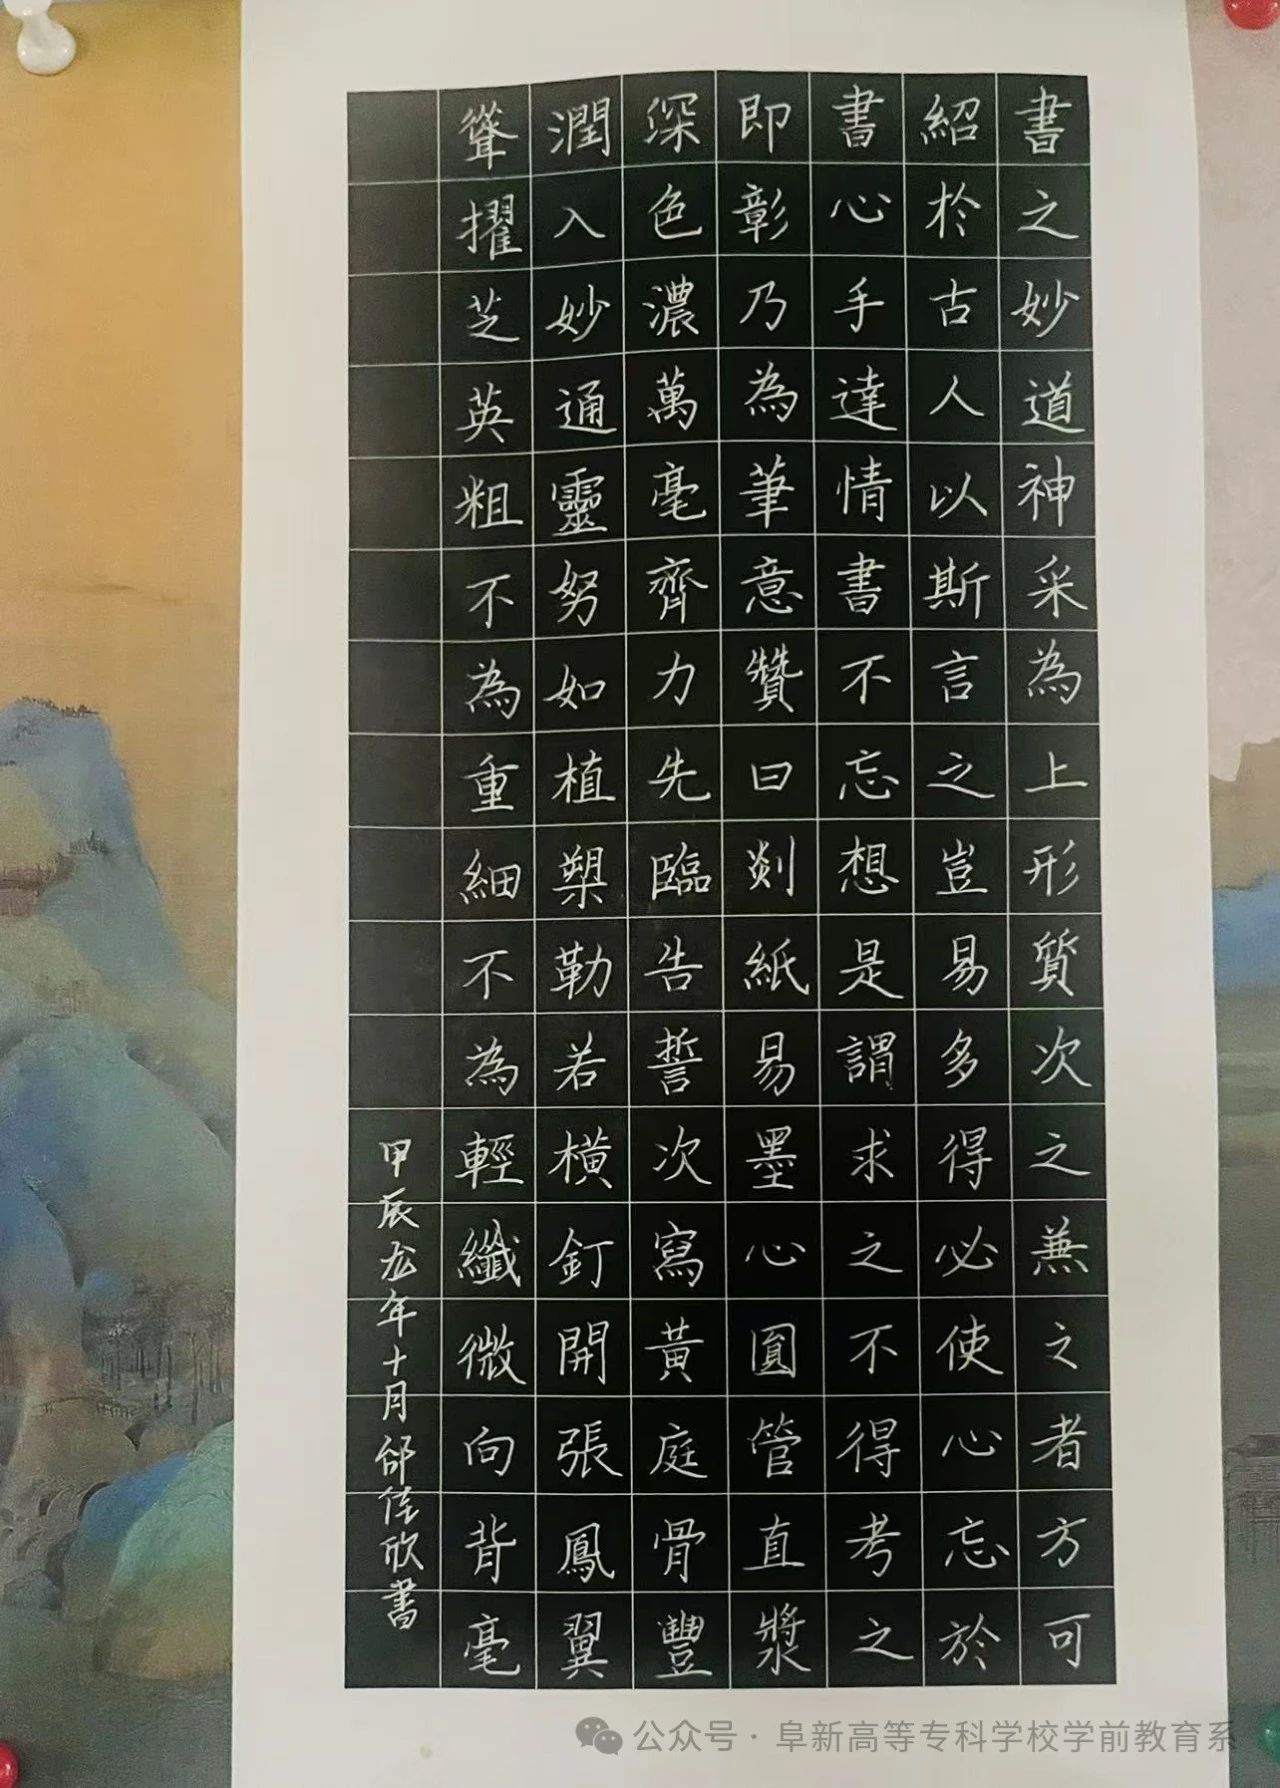 書之妙道神采為上形質次之兼之者方可
紹於古人以斯言之豈易多得必使心忘於
書心手達情書不忘想是謂求之不得考之
即彰乃為筆意贊曰剡紙易墨心圓管直漿
深色濃萬毫齊力先臨告誓次寫黃庭骨豐
潤入妙通靈努如植槊勒若橫釘開張鳳翼
聳擢芝英粗不為重細不為輕纖微向背毫
甲辰龙年十月邰佳欣書
公众号·阜新高等专科学校学前教育系